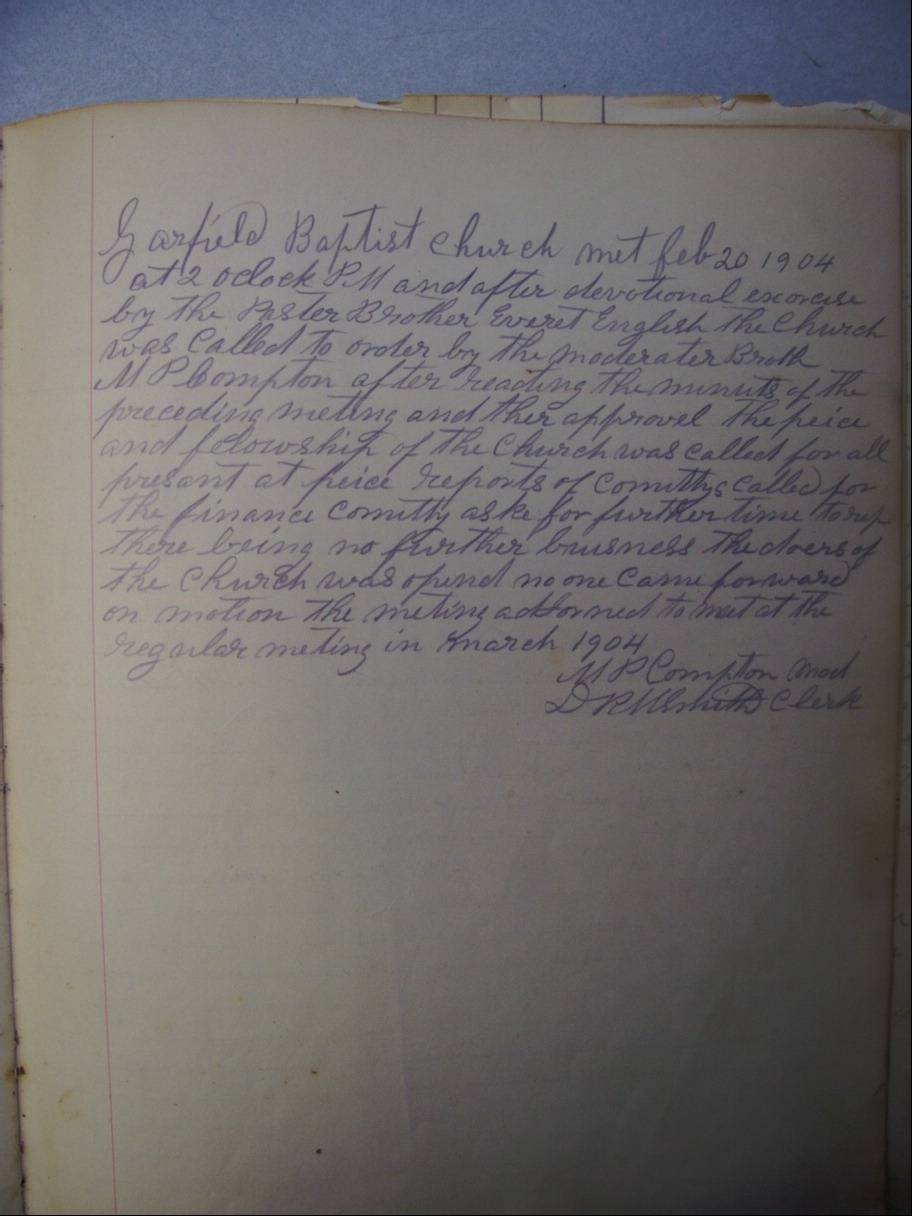 Garfield Baptist Church met feb 20 1904
at 2 oclock PM and after devotional excorcise
by the Paster Brother Everet English the Church
was Called to order by the moderater Broth
M P Compton after reading the minuts of the
preceding meting and ther approvel the peice
and felowship of the Church was called for all
presant at peice reports of Comittys called for
the finance comitty aske for further time to rep
there being no further brusness the doers of
the Church was opend no one Came forward
on motion the meting adJorned to met at the
regular meting in march 1904
M P Compton Mod
Smith Clerk